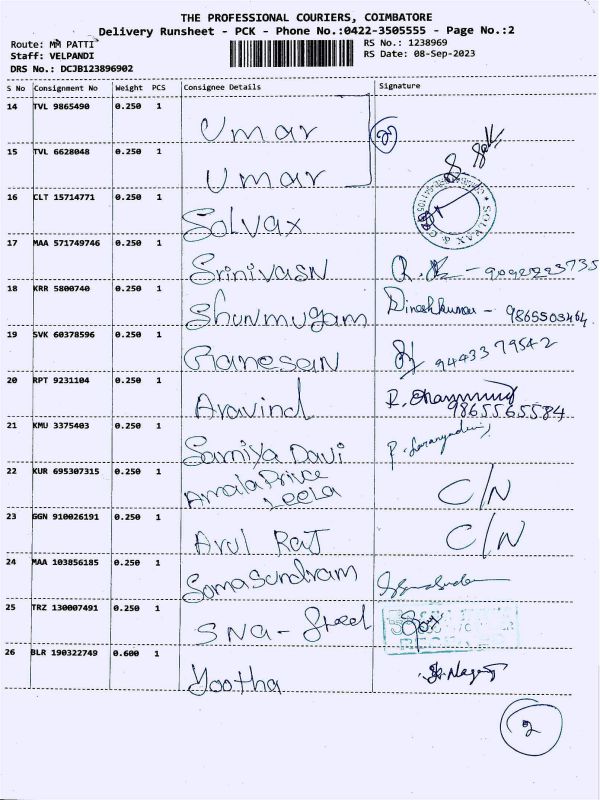 THE PROFESSIONAL COURIERS, COIMBATORE
Delivery Runsheet - PCK - Phone No.:0422-3505555 - Page No.:2
Route: MM PATTI
RS No.: 1238969
Staff: VELPANDI
RS Date: 08-Sep-2023
DRS No.: DCJB123896902
S No Consignment No Weight PCS Consignee Details Signature
14 TVL 9865490 0.250 1 Umar
15 TVL 6628048 0.250 1 Umar
16 CLT 15714771 0.250 1 Solvax
17 MAA 571749746 0.250 1 Srinivasn
18 KRR 5800740 0.250 1 Shunmugam Dineshkumar - 9865503464
19 SVK 60378596 0.250 1 Ganesan 9443379542
20 RPT 9231104 0.250 1 Aravind 9865565584
21 KMU 3375403 0.250 1 Samiya Davi
22 KUR 695307315 0.250 1 Amala Prince Leela C/N
23 GGN 910026191 0.250 1 Arul Raj C/N
24 MAA 103856185 0.250 1 Somasundram
25 TRZ 130007491 0.250 1 SNA - Steel
26 BLR 190322749 0.600 1 Yootha
2